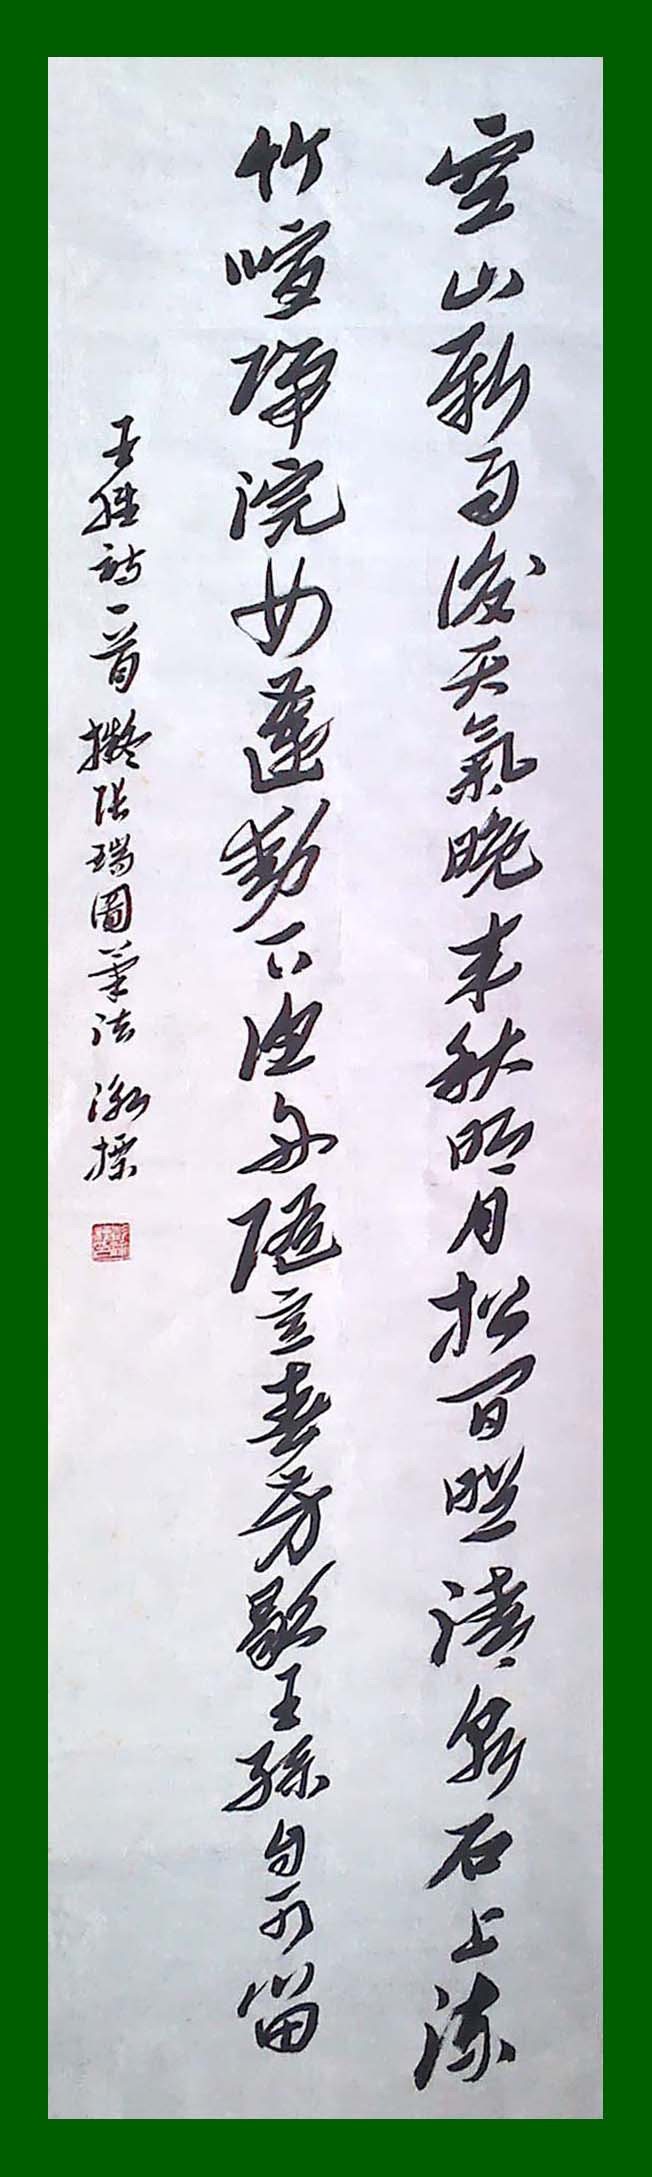 空山新雨後天氣晚来秋明月松間照清泉石上流
竹喧歸浣女蓮動下漁舟隨意春芳歇王孫自可留
王維詩一首擬張瑞圖筆法